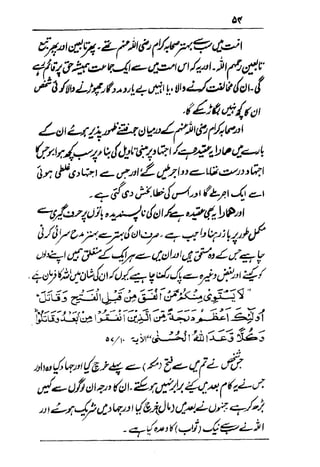 ۵۴
امت میں سب سے بہتر صحابہ کرام رضی اللہ عنہم تھے۔ پھر تابعین اور پھر تبع
تابعین رحمہم اللہ۔ اور یہ کہ اس امت میں سے ایک جماعت ہمیشہ حق پر قائم رہے
گی۔ ان کی مخالفت کرنے والا، یا انہیں بے یار و مددگار چھوڑنے والا کوئی شخص
ان کا کچھ نہیں بگاڑ سکے گا۔
اور صحابہ کرام رضی اللہ عنہم کے درمیان جو فتنے ظہور پذیر ہوئے ان کے
بارے میں ہمارا یہ عقیدہ ہے کہ اجتہاد پر مبنی تاویل کی بناء پر سب کچھ ہوا۔ جس کا
اجتہاد درست تھا اسے دو اجر ملیں گے اور جس سے اجتہادی غلطی ہوئی
اسے ایک اجر ملے گا اور اس کی خطا بخش دی گئی ہے۔
اور ہمارا یہ بھی عقیدہ ہے کہ ان کی ناپسندیدہ باتوں پر حرف گیری سے
مکمل طور پر باز رہنا واجب ہے۔ صرف ان کی بہتر سے بہتر مدح سرائی کرنی
چاہیے جس کے وہ مستحق ہیں اور ان میں سے ہر ایک کے متعلق ہمیں اپنے دلوں
کو کینے اور بغض وغیرہ سے پاک رکھنا چاہیے کیوں کہ ان کی شان میں اللہ کا فرمان ہے۔
"لَا يَسْتَوِي مِنْكُمْ مَنْ أَنْفَقَ مِنْ قَبْلِ الْفَتْحِ وَقَاتَلَ
أُولَٰئِكَ أَعْظَمُ دَرَجَةً مِنَ الَّذِينَ أَنْفَقُوا مِنْ بَعْدُ وَقَاتَلُوا
وَكُلًّا وَعَدَ اللَّهُ الْحُسْنَىٰ" الآیۃ ۵۷/۱۰
جس شخص نے تم میں سے فتح (مکہ) سے پہلے خرچ کیا اور جہاد کیا وہ اور
جس نے یہ کام بعد میں کئے برابر نہیں ہو سکتے۔ ان کا درجہ ان لوگوں سے کہیں
بڑھ کر ہے جنہوں نے بعد میں (مال) خرچ کیا اور جہاد میں شریک ہوئے اور
اللہ نے سب سے نیک (ثواب) کا وعدہ کیا ہے۔